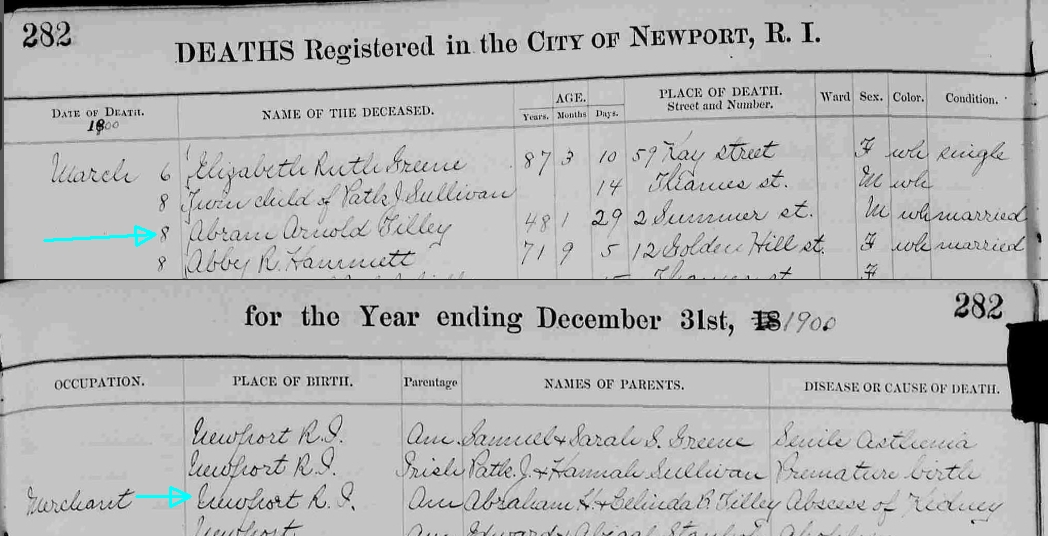 282
DEATHS Registered in the CITY OF NEWPORT, R. I.
DATE OF DEATH. 1900 NAME OF THE DECEASED. AGE. Years. Months Days. PLACE OF DEATH. Street and Number. Ward Sex. Color. Condition.
March 6 Elizabeth Ruth Greene 87 3 10 59 Kay street F wh single
8 Twin child of Patk J Sullivan 14 Thames st. M wh
8 Abram Arnold Tilley 48 1 29 2 Summer st. M wh married
8 Abby R. Hammett 71 9 5 12 Golden Hill st. F wh married
Thames st F
for the Year ending December 31st, 18 1900 282
OCCUPATION. PLACE OF BIRTH. Parentage NAMES OF PARENTS. DISEASE OR CAUSE OF DEATH.
Newport R.I. Am. Samuel & Sarah S. Greene Senile Asthenia
Newport R.I. Irish Patk. J. & Hannah Sullivan Premature birth
Merchant Newport R.I. Am Abraham H & Belinda R Tilley Abscess of Kidney
Newport. Am Edward & Abigail